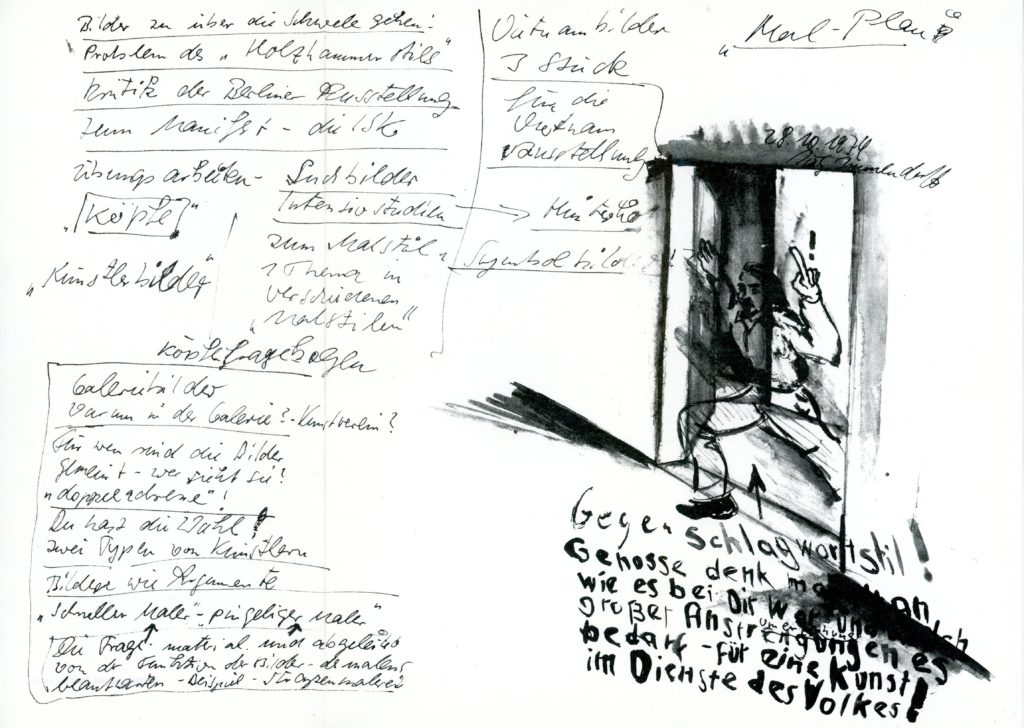 Bilder zu über die Schwelle gehen!
Problem des „Holzhammerstils"
Kritik der Berliner Ausstellung
zum Manifest - die ISK
Übungsarbeiten -
„Köpfe"
Suchbilder
Intensivstudien
„Künstlerbilder"
zum Malstil
1 Thema in
verschiedenen
„Malstilen"
Vietnambilder
3 Stück
für die
Vietnam
ausstellung
Symbolbilder
„Mal-Plan"
28.10.1971
Jörg Immendorff
!
Galeriebilder
Warum in der Galerie? - Kunstverein?
Für wen sind die Bilder
gemeint - wer sieht sie?
Du hast die Wahl!
zwei Typen von Künstlern
Bilder wie Argumente
„schneller Maler" - „pingeliger Maler"
Die Frage material. und abgeleitet
von der Funktion der Bilder - des Malens
beantworten - Beispiel - Strassenmalerei
Gegen Schlagwortstil!
Genosse denk mal
wie es bei Dir war und
großer Anstrengungen es
bedarf - für eine Kunst
im Dienste des Volkes!